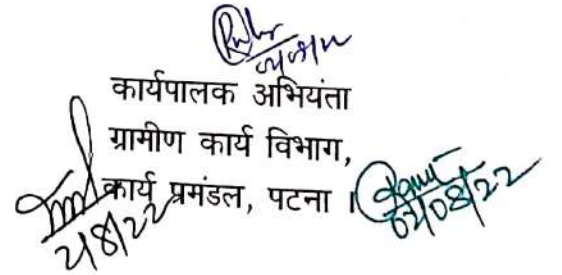 02/08/22
कार्यपालक अभियंता
ग्रामीण कार्य विभाग,
कार्य प्रमंडल, पटना ।
2/8/22
02/08/22